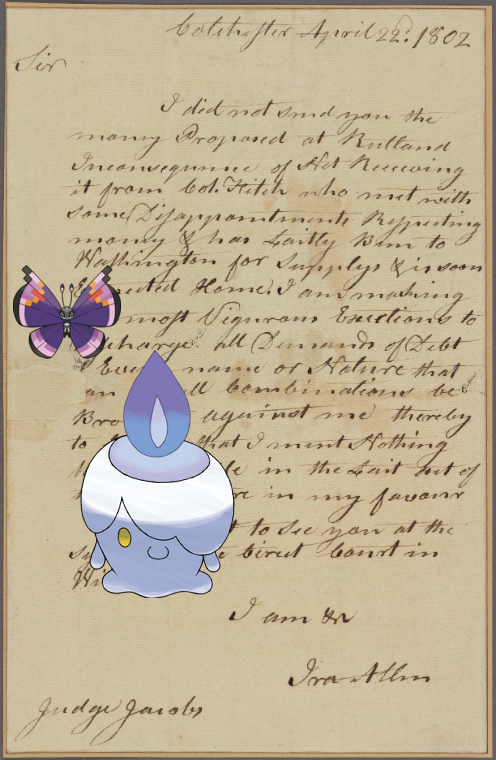 Colchester April 22d: 1802
Sir
I did not send you the
money Proposed at Rutland
Inconsequence of Not Receiving
it from Col. Fitch who met with
some Disappointments Respecting
money & has Laitly Bin to
Washington for Supplys & is soon
Home, I am making
most Vigurous Exertions to
all Demands of Debt
name or Nature that
Combinations be
against me thereby
to that I ment Nothing
in the Last out of
in my favour
to see you at the
Court in
I am &c
Ira Allen
Judge Jacobs